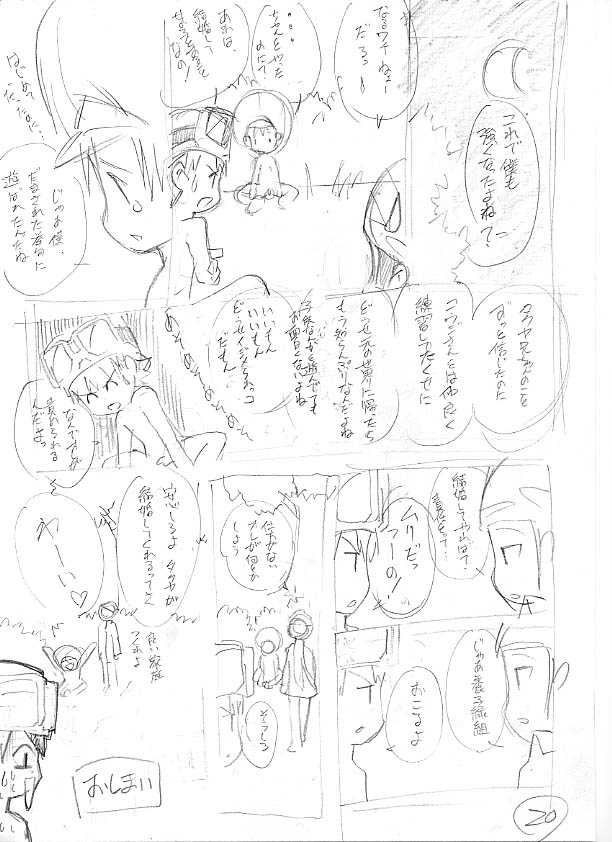 これで僕も
強くなたよね？
なるワケねー
だろっ！
・・・
ちゃんとやった
のにー
あれは
結婚して
する行為
なの！
はじめて
だったのに…
じゃあ僕、
だまされた挙句に
遊ばれたんだね
タクヤ兄ちゃんのこと
ずっと信じてたのに
コウジさんとは仲良く
練習してたくせに
どうせ元の世界に帰ったら
もう知らんぷりなんだよね
子供なんかと遊んでても
面白くないよね
いいもん
いいもん
どーせ
だもん
なんでオレが
責められる
んだよっ
結婚してやれば？
責任とって
ムリだっ
つーの！
じゃあ養子縁組
おこるよ
仕方ない
オレが何とか
しよう
そうしろ
安心しろよ タクヤが
結婚してくれるってさ
わーい♡
良い家庭
つくれよ
おしまい
20